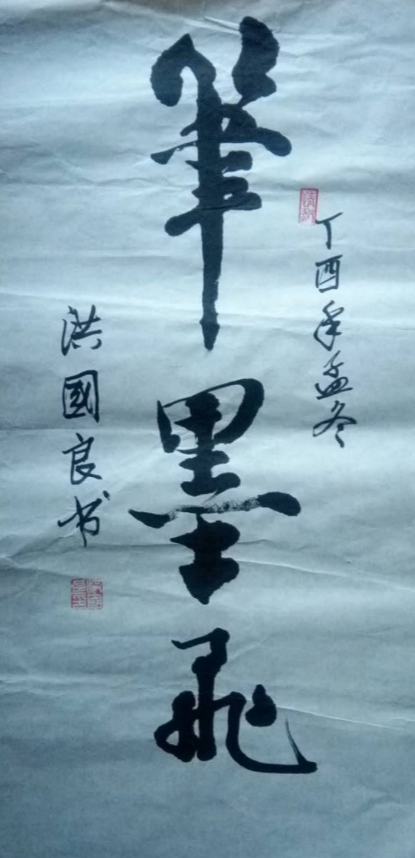 丁酉年孟冬
筆墨飛
洪國良书